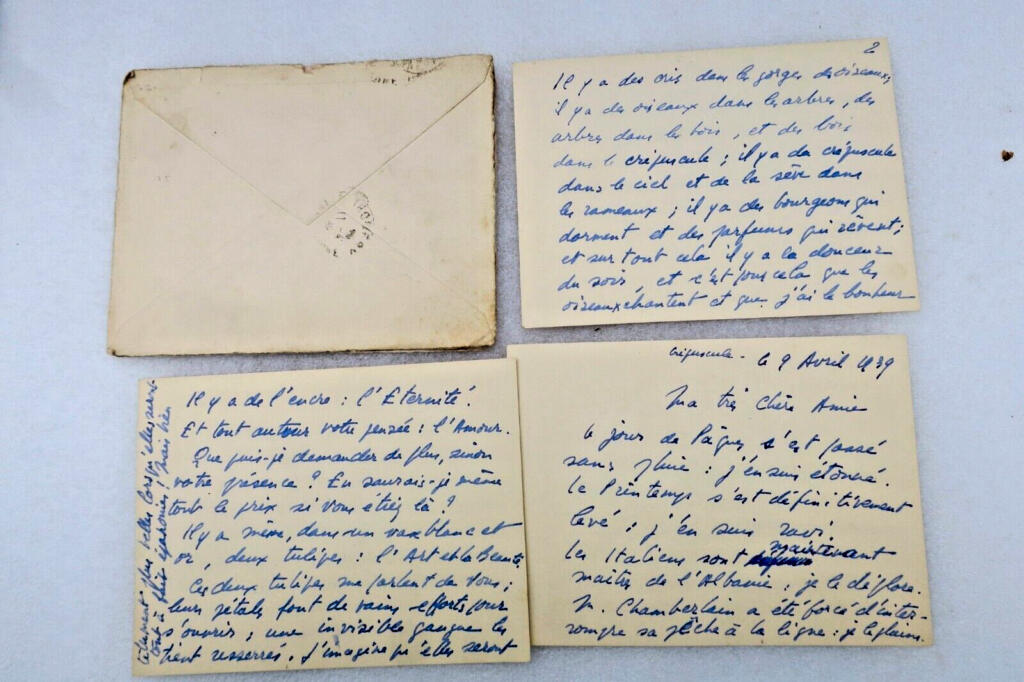 crépuscule - le 9 Avril 1939
Ma très chère Amie
Le jour de Pâques s'est passé
sans pluie : j'en suis étonné.
Le Printemps s'est définitivement
levé : j'en suis ravi.
Les Italiens sont maintenant
maîtres de l'Albanie : je le déplore.
M. Chamberlain a été forcé d'inter-
rompre sa pêche à la ligne : je le plains.
2
Il y a des cris dans les gorges des oiseaux,
il y a des oiseaux dans les arbres, des
arbres dans les bois, et des bois
dans le crépuscule ; il y a du crépuscule
dans le ciel et de la sève dans
les rameaux ; il y a des bourgeons qui
dorment et des parfums qui rêvent ;
et sur tout cela il y a la douceur
du soir, et c'est pour cela que les
oiseaux chantent et que j'ai le bonheur
Il y a de l'encre : l'Eternité.
Et tout autour votre pensée : l'Amour.
Que puis-je demander de plus, sinon
votre présence ? En saurais-je même
tout le prix si vous étiez là ?
Il y a même, dans un vase blanc et
or, deux tulipes : l'Art et la Beauté.
Ces deux tulipes me parlent de Vous ;
leurs pétales font de vains efforts pour
s'ouvrir ; une invisible gangue les
tient resserrés. J'imagine qu'elles seront
tellement plus belles lorsqu'elles seront
tout à fait épanouies ! mais rien